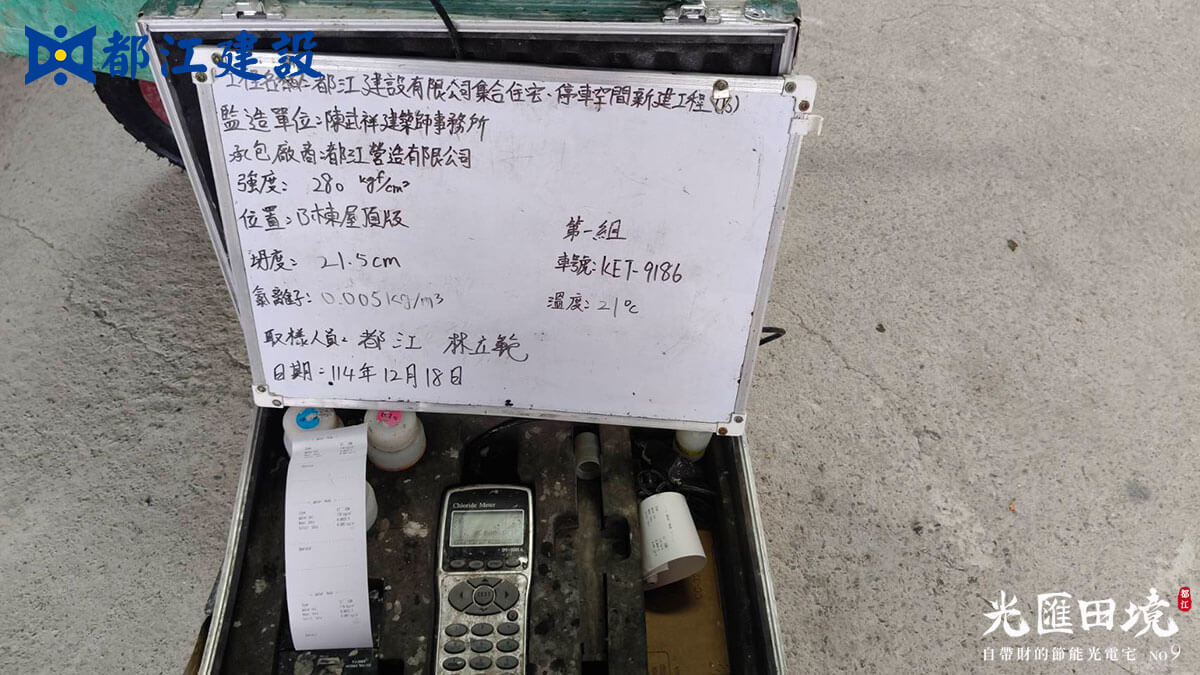 都江建設
工程名稱:都江建設有限公司集合住宅、停車空間新建工程(B)
監造單位:陳武祥建築師事務所
承包廠商:都江營造有限公司
強度: 280 kgf/cm²
位置:B棟屋頂版
第一組
坍度: 21.5cm
車號:KET-9186
氯離子:0.005kg/m³
溫度:21°c
取樣人員:都江 林立範
日期:114年12月18日
Chloride Meter
光匯田境
都江
自帶財的節能光電宅 NO9